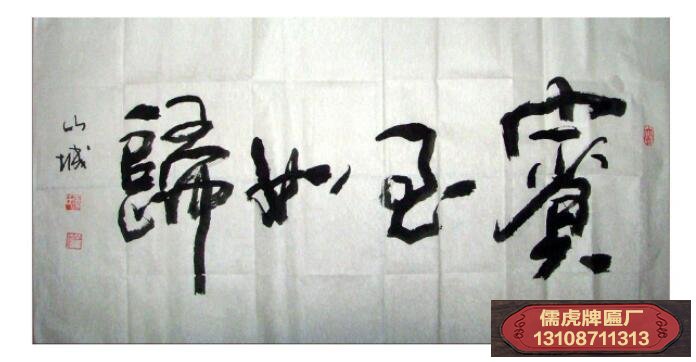 賓至如歸
山城
儒虎牌匾厂
13108711313